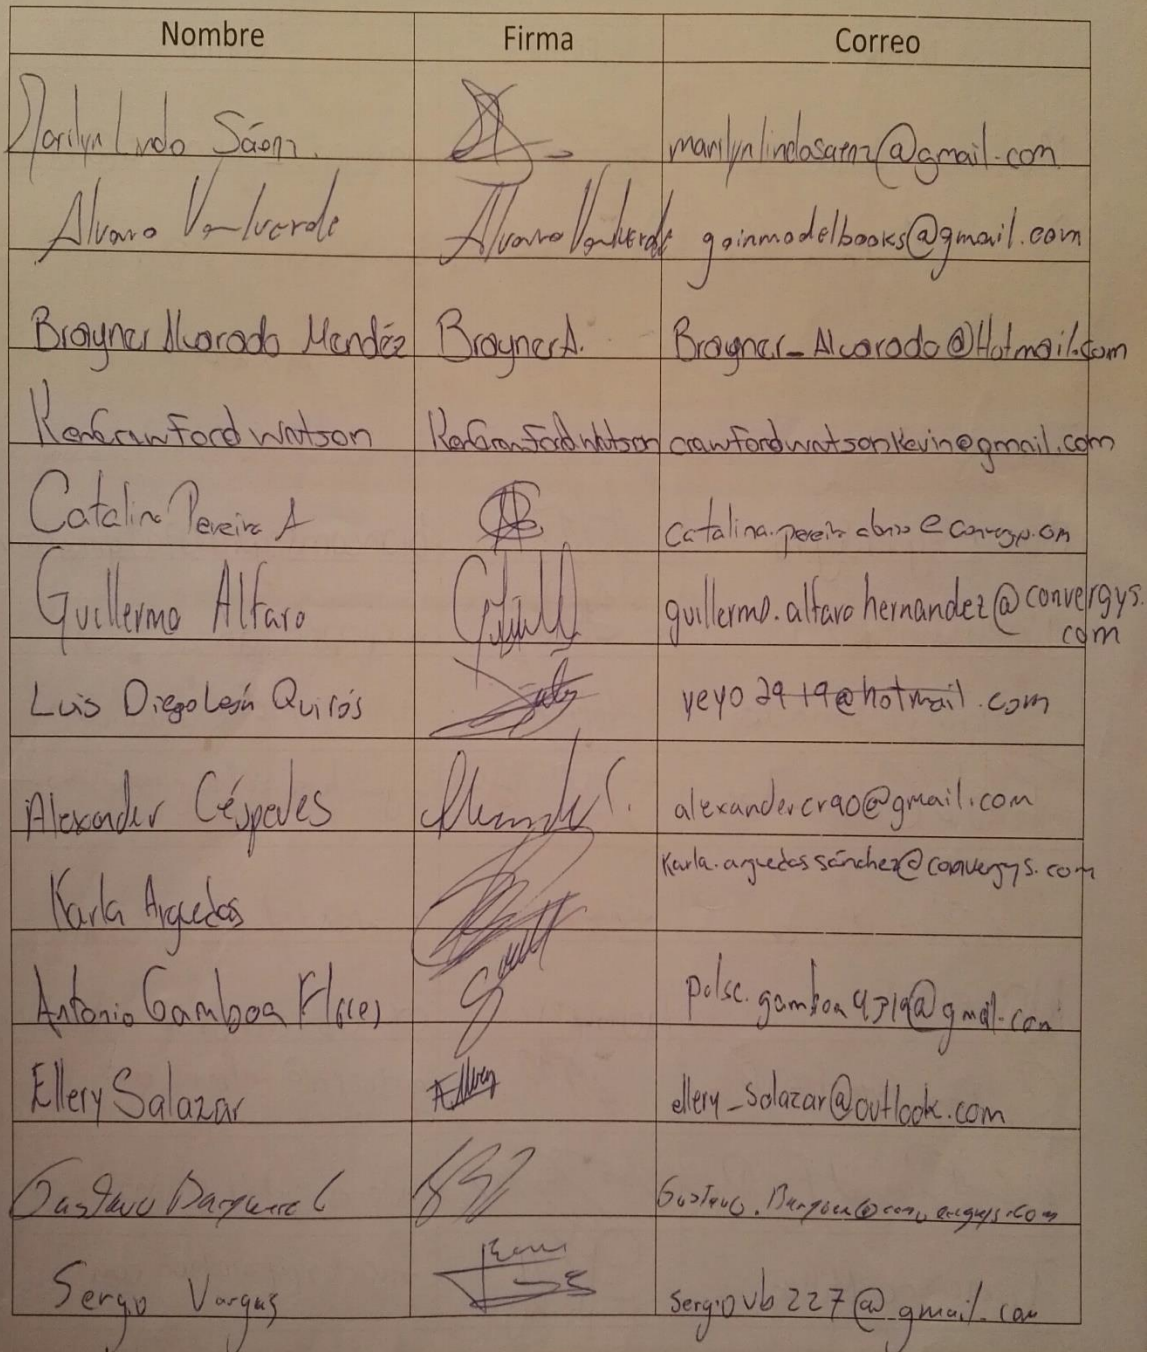 Nombre Firma Correo
Marilyn Lindo Sáenz. marilynlindosaenz@gmail.com
Alvaro Valverde Alvaro Valverde goinmodelbooks@gmail.com
Brayner Alvarado Mendéz Brayner A. Brayner_Alvarado@Hotmail.com
Crawford Watson crawfordwatsonkevin@gmail.com
Catalina Pereira A
Guillermo Alfaro guillermo.alfaro hernandez@convergys.
com
Luis Diego León Quirós yeyo2919@hotmail.com
Alexander Céspedes alexandercr90@gmail.com
Karla Arguedas Karla.arguedas sánchez@convergys.com
Antonio Gamboa Flores
Ellery Salazar Ellery ellery_salazar@outlook.com
Gustavo
Sergio Vargas sergiovb227@gmail.com